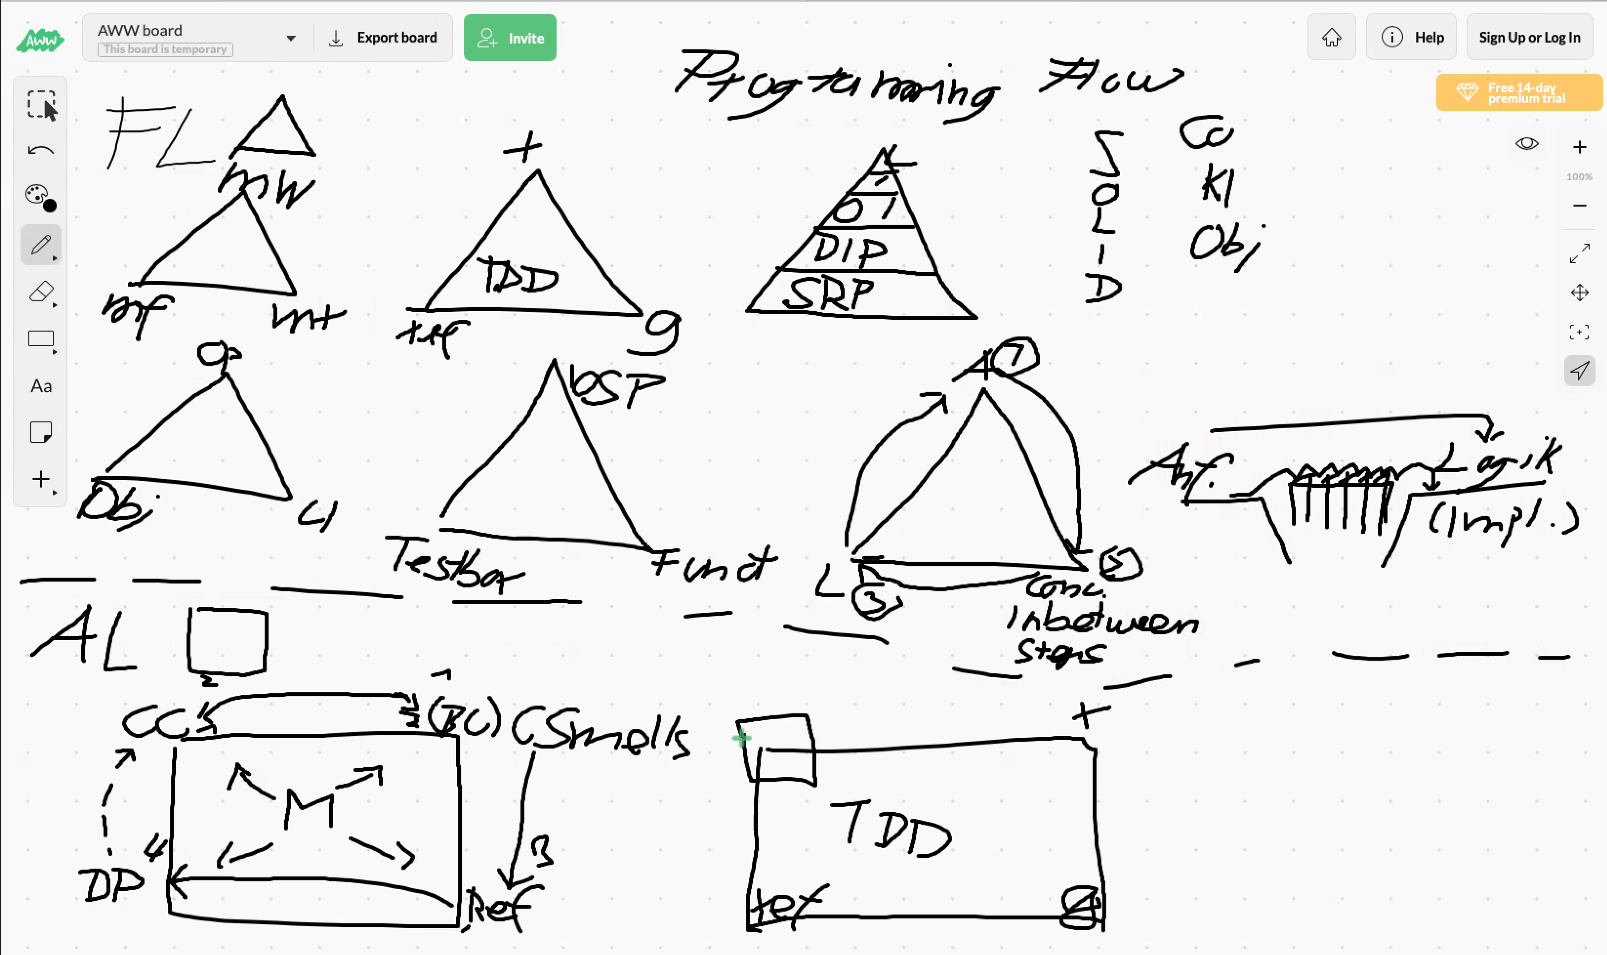 AWW
AWW board
This board is temporary
Export board
Invite
Help
Sign Up or Log In
Free 14-day
premium trial
100%
Aa
Programming Flow
FL
mw
mf
mt
t
TDD
ref
g
O I
DIP
SRP
S
O
L
I
D
CC
Kl
Obj
Obj
bSP
Testbar
Funct
7
L
3
5
Conc.
Inbetween
Steps
Anf.
Logik
(Impl.)
AL
2
1
CC
(BC) CSmells
M
4
3
DP
Ref
t
TDD
ref
g